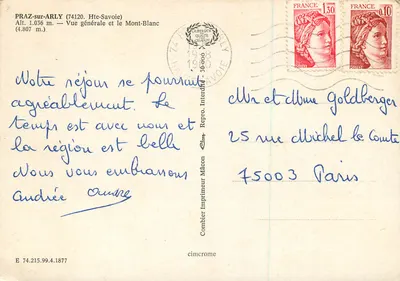 PRAZ-sur-ARLY (74120. Hte-Savoie)
Alt. 1.036 m. — Vue générale et le Mont-Blanc
(4.807 m.)
Notre séjour se poursuit
agréablement. Le
temps est avec nous et
la région est belle
Nous vous embrassons
Andrée Andrée
E 74.215.99.4.1877
Combier Imprimeur Mâcon
Repro. Interdite
cimcrome
1,30
0,10
Mr et Mme Goldberger
25 rue Michel le Comte
75003 Paris